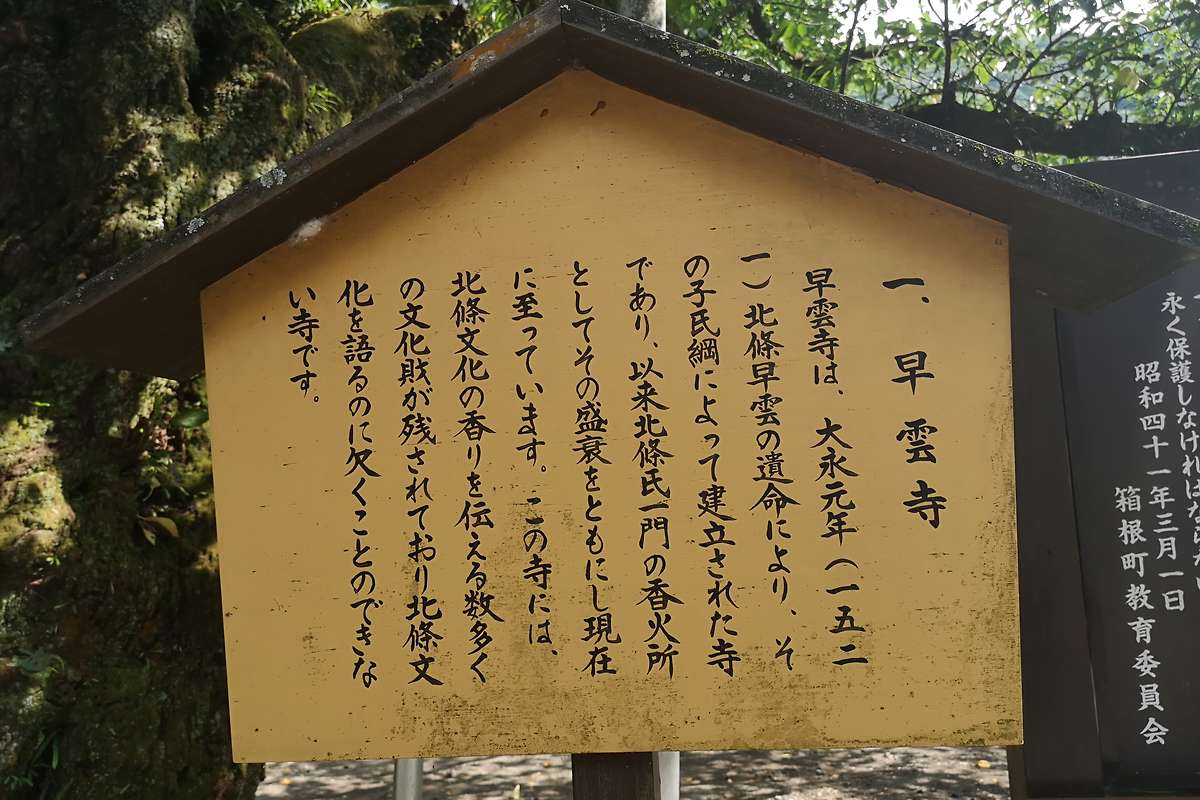 一、早雲寺
早雲寺は、大永元年(一五二
一)北條早雲の遺命により、そ
の子氏綱によって建立された寺
であり、以来北條氏一門の香火所
としてその盛衰をともにし現在
に至っています。この寺には、
北條文化の香りを伝える数多く
の文化財が残されており北條文
化を語るのに欠くことのできな
い寺です。
永く保護しなければならな
昭和四十一年三月一日
箱根町教育委員会